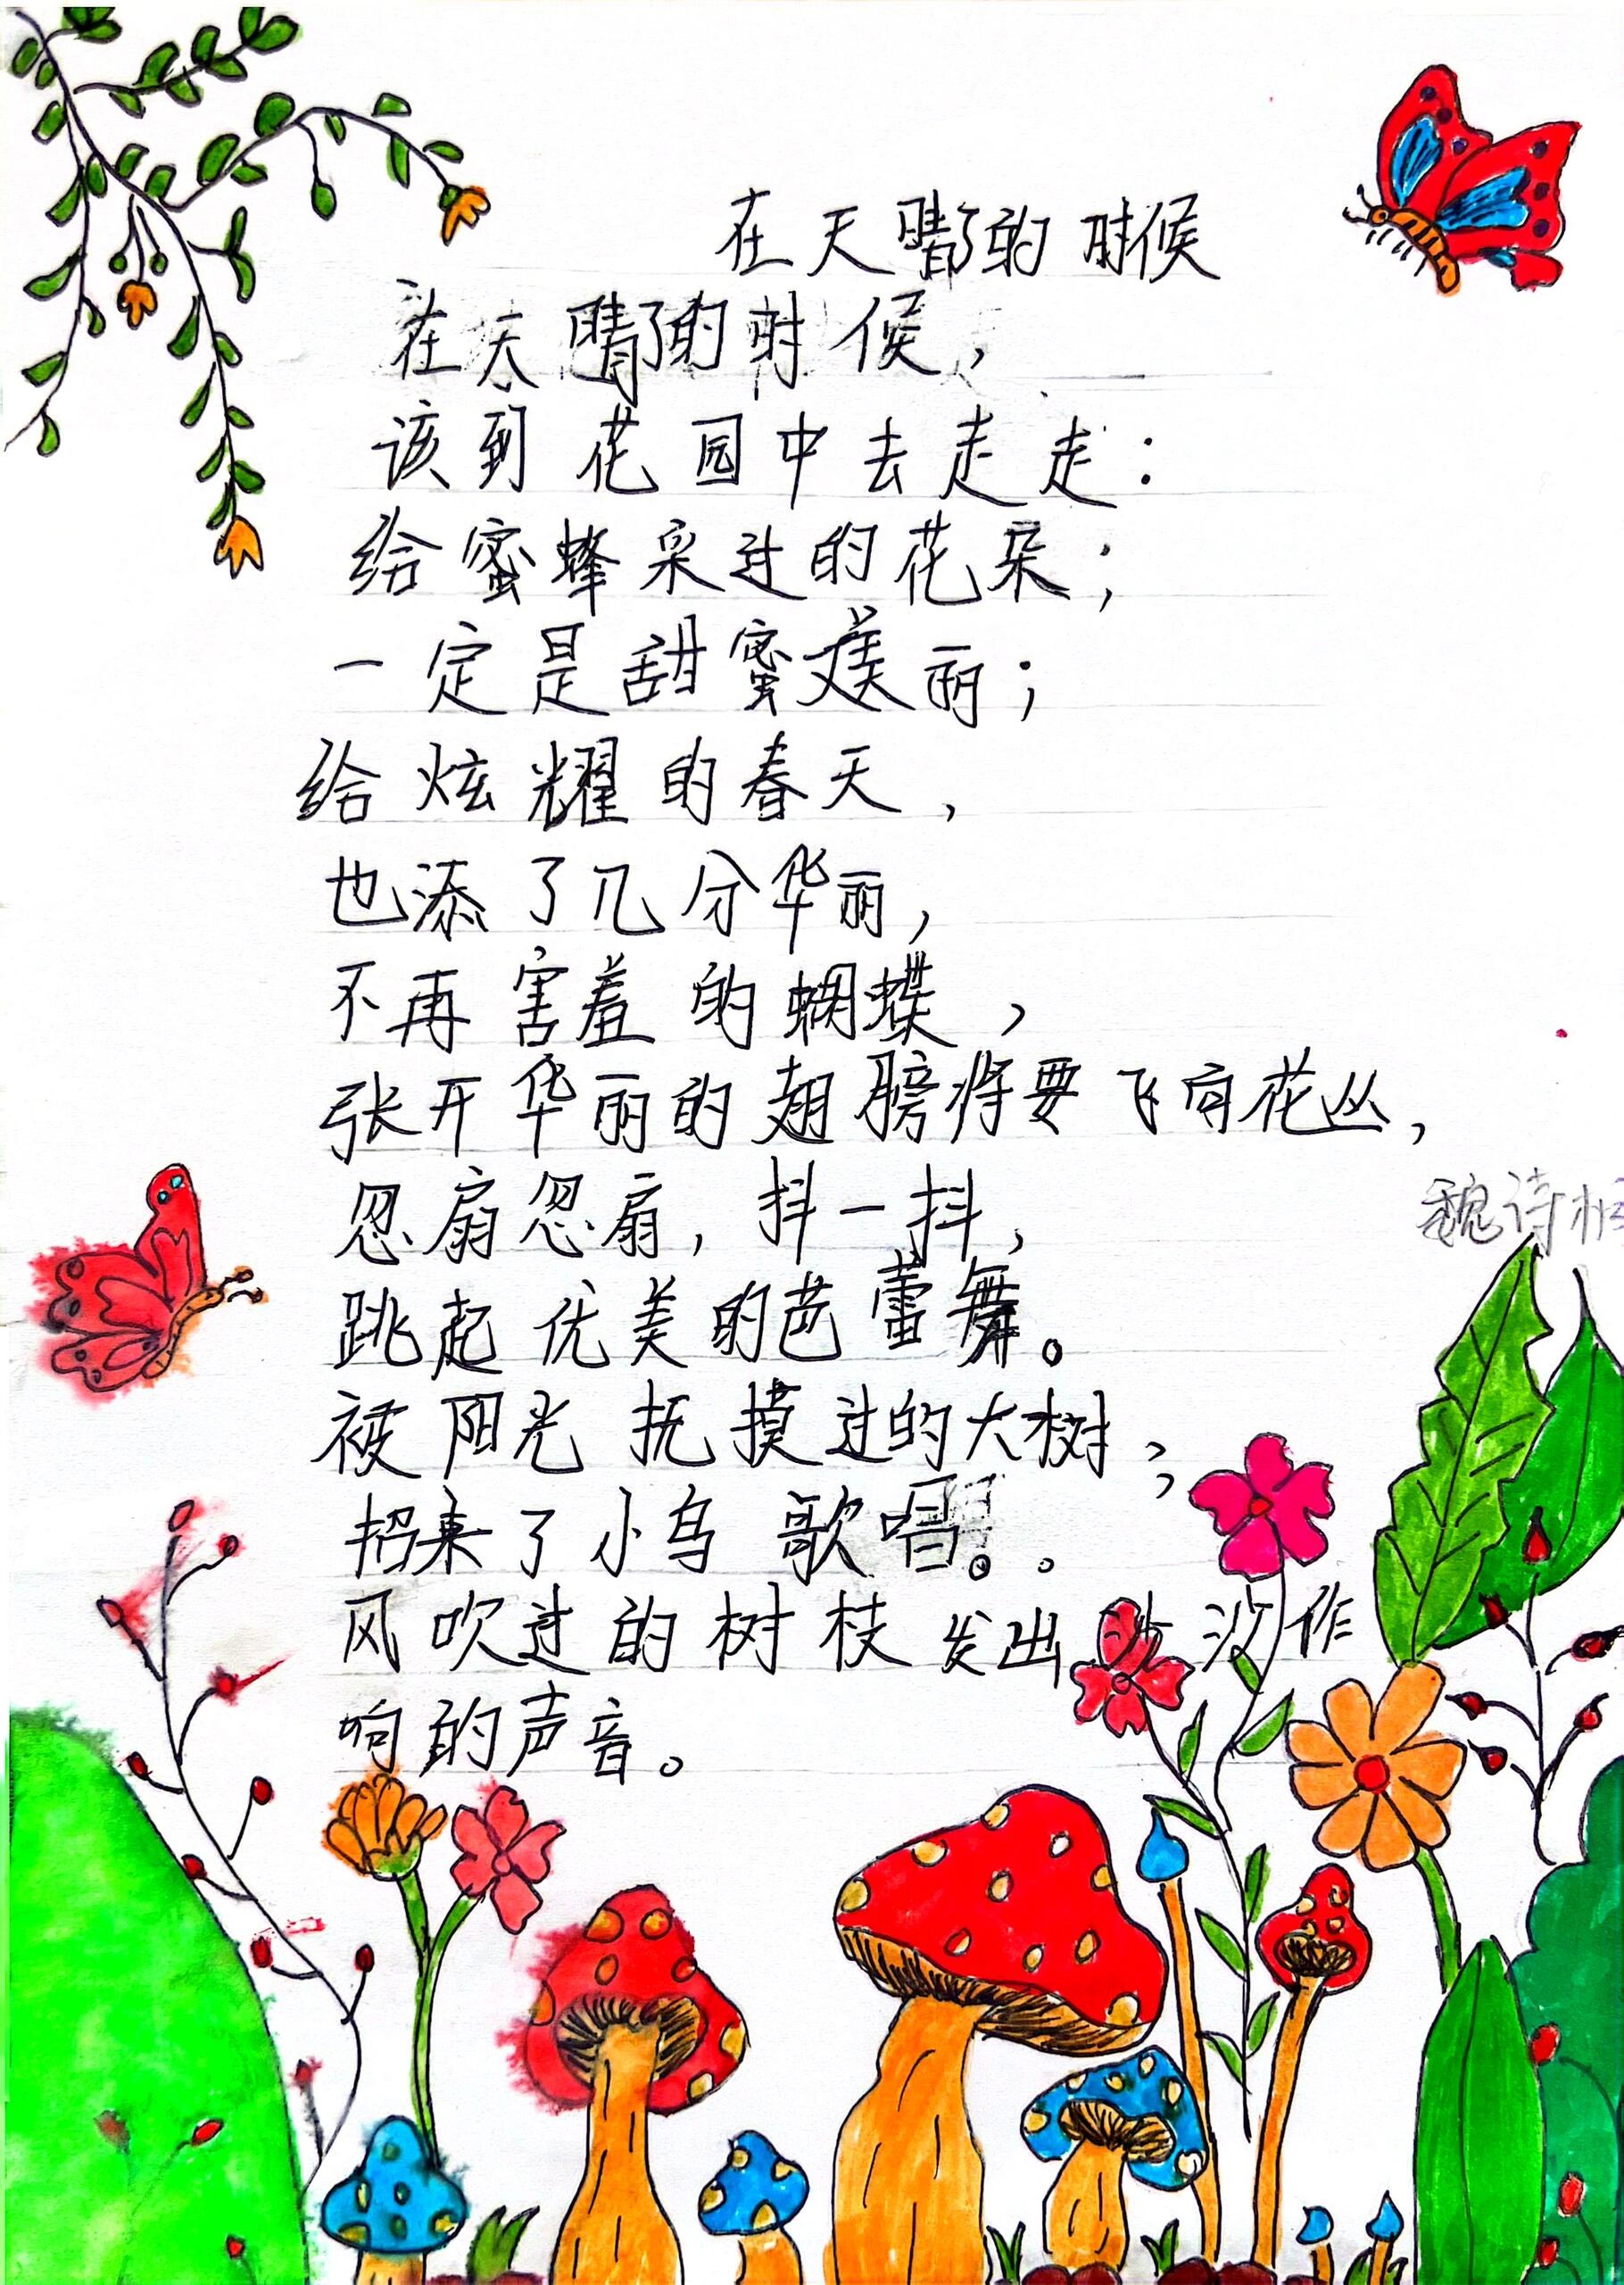 在天晴了的时候
在天晴了的时候，
该到花园中去走走：
给蜜蜂采过的花朵；
一定是甜蜜美丽；
给炫耀的春天，
也添了几分华丽，
不再害羞的蝴蝶，
张开华丽的翅膀将要飞向花丛，
忽扇忽扇，抖一抖，
魏诗
跳起优美的芭蕾舞。
被阳光抚摸过的大树，
招来了小鸟歌唱。
风吹过的树枝发出沙沙作
响的声音。